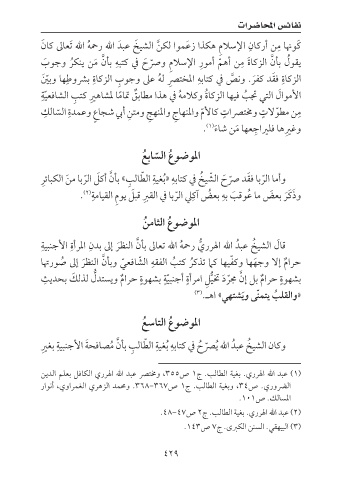 نفائس المحاضرات
كَونها مِن أركانِ الإسلامِ هكذا زعَموا لكنَّ الشيخَ عبدَ الله رحمهُ الله تَعالى كانَ
يقولُ بأنَّ الزكاةَ مِن أهمِّ أمورِ الإسلامِ وصرّحَ في كتبهِ بأنَّ مَن ينكرُ وجوبَ
الزكاةِ فقَد كفرَ. ونصَّ في كتابهِ المختصرِ لهُ على وجوبِ الزكاةِ بشروطِها وبيّنَ
الأموالَ التي تجبُ فيها الزكاةُ وكلامهُ في هذا مطابقٌ تمامًا لمشاهيرِ كتبِ الشافعيّةِ
مِن مطوّلاتٍ ومختصراتٍ كالأمّ والمنهاجِ والمنهجِ ومتنِ أبي شجاعٍ وعمدةِ السّالكِ
وغيرِها فليراجعها مَن شاءَ(١).
الموضوعُ السّابعُ
وأما الرّبا فقَد صرّحَ الشّيخُ في كتابهِ «بُغيةِ الطّالبِ» بأنَّ أكلَ الرّبا منَ الكبائرِ
وذَكَرَ بعضَ ما عُوقبَ بهِ بعضُ آكلي الرّبا في القبرِ قبلَ يومِ القيامةِ(٢).
الموضوعُ الثامنُ
قالَ الشيخُ عبدُ الله الهرريُّ رحمهُ الله تعالى بأنَّ النظرَ إلى بدنِ المرأةِ الأجنبيةِ
حرامٌ إلا وجهَها وكفّيها كما تذكرُ كتبُ الفقهِ الشّافعيّ وبأنَّ النظرَ إلى صُورتها
بشهوةٍ حرامٌ بل إنَّ مجرّدَ تخيُّلِ امرأةٍ أجنبيّةٍ بشهوةٍ حرامٌ ويستدلُّ لذلكَ بحديثِ
«والقلبُ يتمنّى ويَشتهي» اهـ.(٣)
الموضوعُ التاسعُ
وكان الشيخُ عبدُ الله يُصرّحُ في كتابهِ بُغيةِ الطّالبِ بأنَّ مُصافحةَ الأجنبيةِ بغيرِ
(١) عبد الله الهرري. بغية الطالب. ج١ ص٣٥٥، ومختصر عبد الله الهرري الكافل بعلم الدين
الضروري. ص٣٤، وبغية الطالب. ج١ ص٣٦٧-٣٦٨. ومحمد الزهري الغمراوي، أنوار
المسالك. ص١٠١.
(٢) عبد الله الهرري. بغية الطالب. ج٢ ص٤٧-٤٨.
(٣) البيهقي. السنن الكبرى. ج٧ ص١٤٣.
٤٢٩